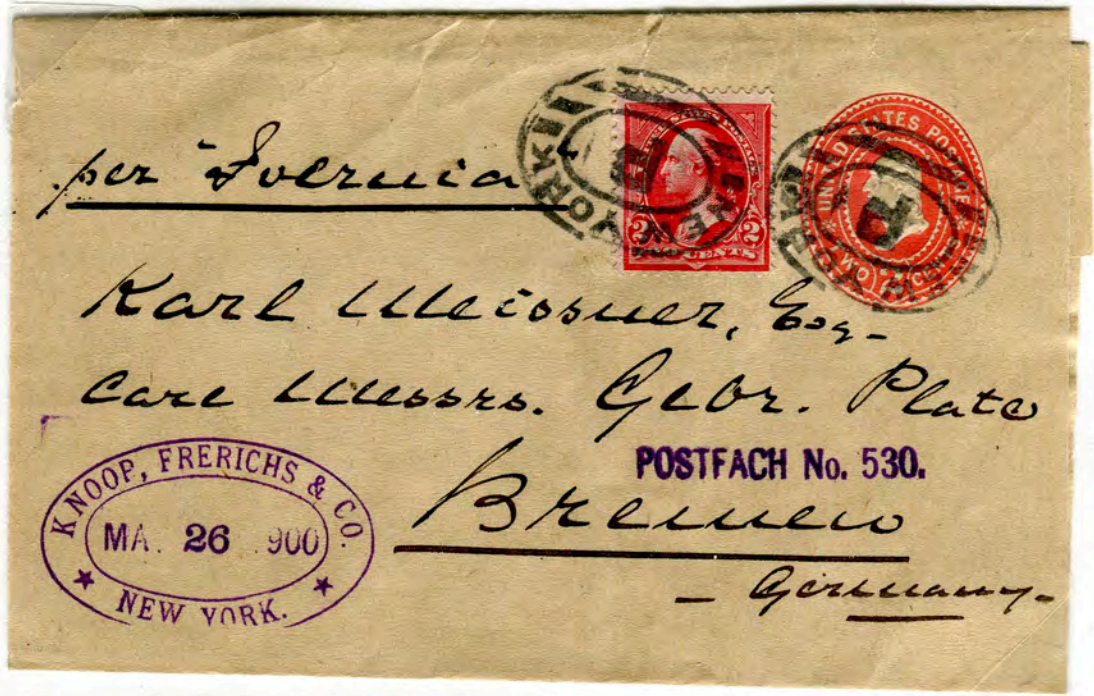 per "Ivernia"
NEW YORK
UNITED STATES POSTAGE
2 CENTS 2
NEW YORK
UNITED STATES POSTAGE
TWO 2 CENTS
Karl Meissner, Esq-
Care Messrs. Gebr. Plate
POSTFACH No. 530.
Bremen
- Germany-
KNOOP, FRERICHS & CO.
MA 26 900
NEW YORK.